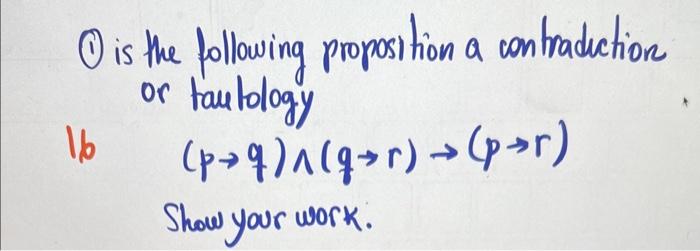 ① is the following proposition a contraduction
or tautology
1b (p→q)∧(q→r)→(p→r)
Show your work.